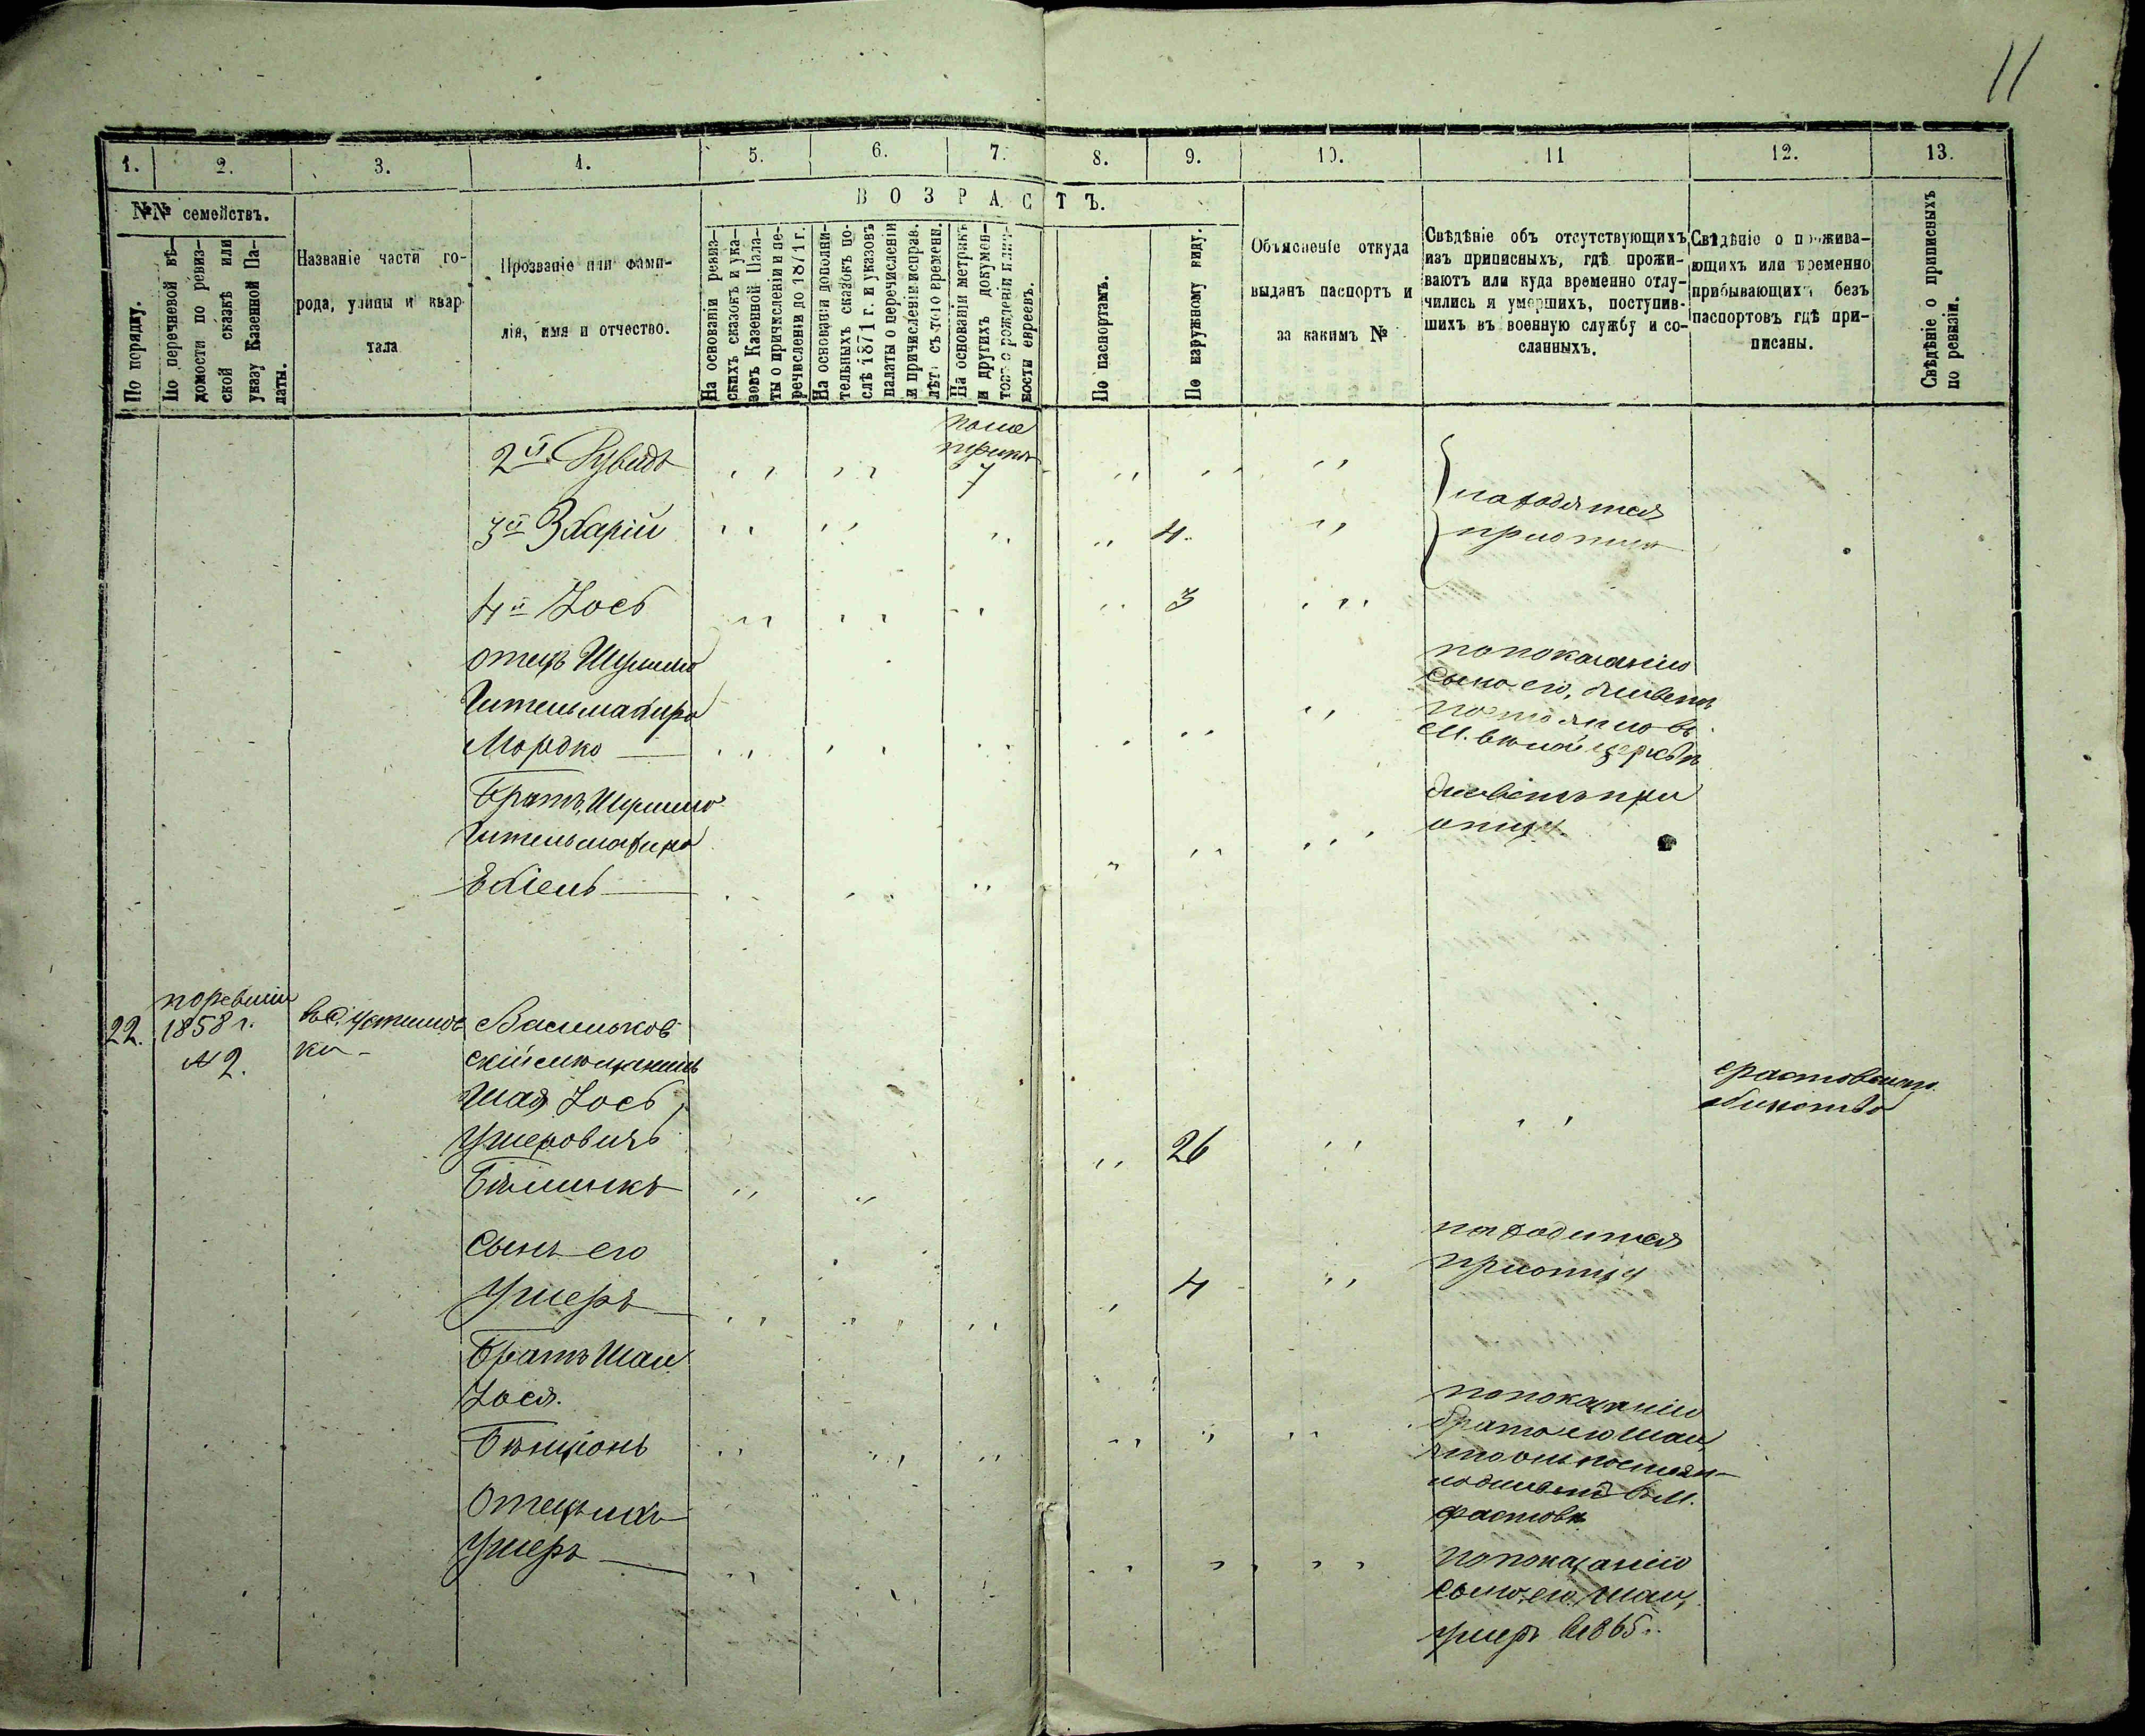 11
1. 2. 3. 4. 5. 6. 7. 8. 9. 10. 11 12. 13.
№№ семействъ.
По порядку.
По перечневой вѣ-
домости по ревиз-
ской сказкѣ или
указу Казенной Па-
латы.
Названіе части го-
рода, улицы и квар
тала
Прозваніе или фами-
лія, имя и отчество.
ВОЗРАСТЪ.
На основаніи ревиз-
скихъ сказокъ и ука-
зовъ Казенной Пала-
ты о причисленіи и пе-
речисленіи до 1871 г.
На основаніи дополни-
тельныхъ сказокъ по-
слѣ 1871 г. и указовъ
палаты о перечисленіи
и причисленіи исправ.
лѣтъ съ того времени.
На основаніи метрикъ
и другихъ докумен-
товъ о рожденіи
ности евреевъ.
По паспортамъ.
По наружному виду.
Объясненіе откуда
выданъ паспортъ и
за какимъ №
Свѣдѣніе объ отсутствующихъ
изъ приписныхъ, гдѣ прожи-
ваютъ или куда временно отлу-
чились и умершихъ, поступив-
шихъ въ военную службу и со-
сланныхъ.
Свѣдѣніе о прожива-
ющихъ или временно
прибывающихъ безъ
паспортовъ гдѣ при-
писаны.
Свѣдѣніе о приписныхъ
по ревизіи.
2й Рувидъ
поме
трики
7
3й Захарій
4
находятся
при отцѣ
4й Іосъ
3
отецъ Шулима
Мордко
по показанію
сына его, живетъ
постоянно въ
м. бѣлой церквѣ
Братъ Шулима
Ехіель
живетъ при
отцѣ
22.
по ревизіи
1858 г.
№ 2.
въ с. Устимов
ки
Васильков
скій мѣщанинъ
Шая Іосъ
Ушеровичъ
26
Сынъ его
Ушеръ
4
находится
при отцѣ
Братъ Шаи
Іося.
Бенціонъ
по показанію
брата его Шаи
что онъ постоян
но живетъ в м.
фастовѣ
Отецъ ихъ
Ушеръ
по показанію
сына его Шаи,
умеръ в 1865